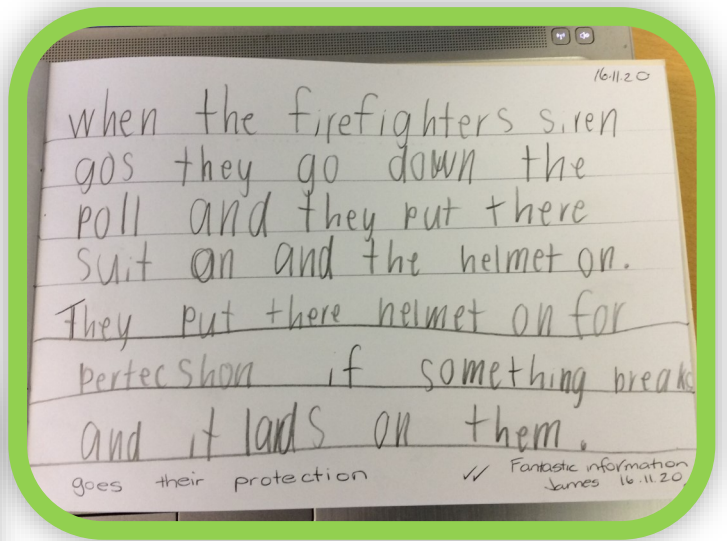 16.11.20
when the firefighters siren
gos they go down the
poll and they put there
suit on and the helmet on.
They put there helmet on for
pertecshon if something breaks
and it lands on them.
goes their protection ✓✓ Fantastic information
James 16.11.20